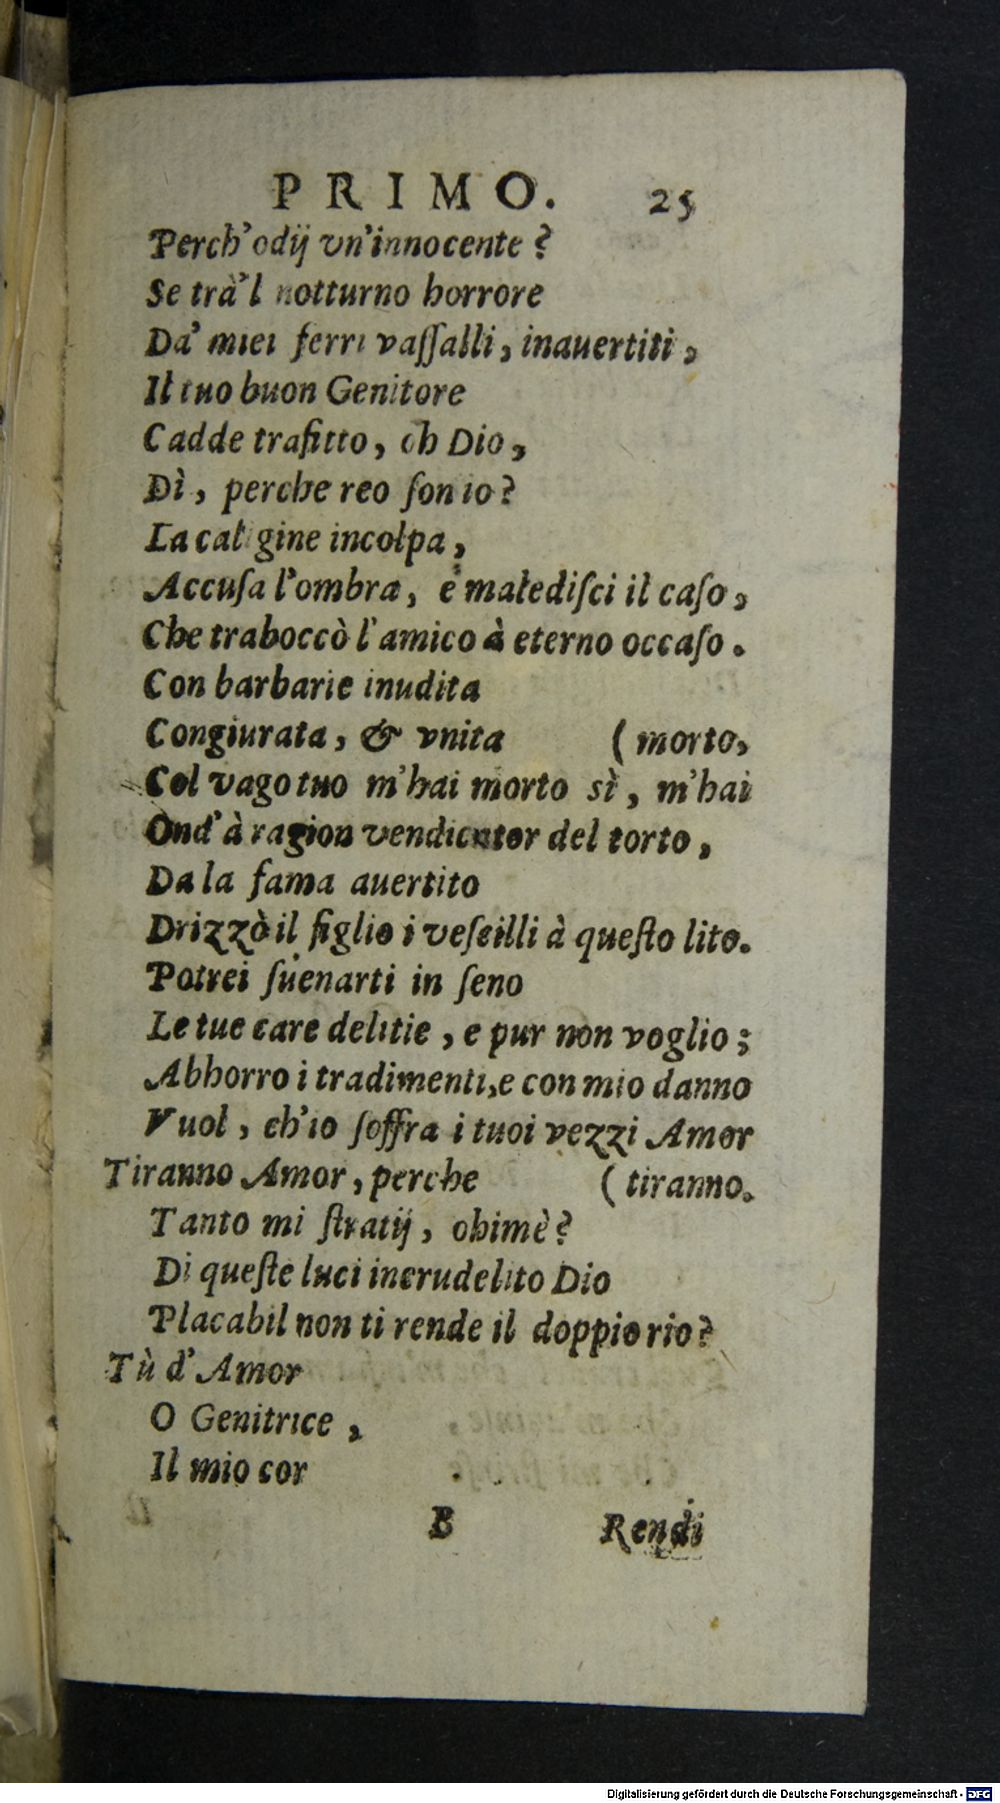 PRIMO. 25
Perch'odij vn'innocente?
Se trà'l notturno horrore
Da' miei ferri vaſſalli, inauertiti,
Il tuo buon Genitore
Cadde trafitto, oh Dio,
Dì, perche reo ſon io?
La caligine incolpa,
Accuſa l'ombra, e malediſci il caſo,
Che traboccò l'amico à eterno occaſo.
Con barbarie inudita
Congiurata, & vnita (morto,
Col vago tuo m'hai morto sì, m'hai
Ond'à ragion vendicator del torto,
Da la fama auertito
Drizzò il figlio i veſeilli à queſto lito.
Potrei ſuenarti in ſeno
Le tue care delitie, e pur non voglio;
Abborro i tradimenti, e con mio danno
Vuol, ch'io ſoffra i tuoi vezzi Amor
Tiranno Amor, perche (tiranno.
Tanto mi ſtratij, ohimè?
Di queſte luci incrudelito Dio
Placabil non ti rende il doppio rio?
Tù d'Amor
O Genitrice,
Il mio cor
B Rendi
Digitalisierung gefördert durch die Deutsche Forschungsgemeinschaft - DFG